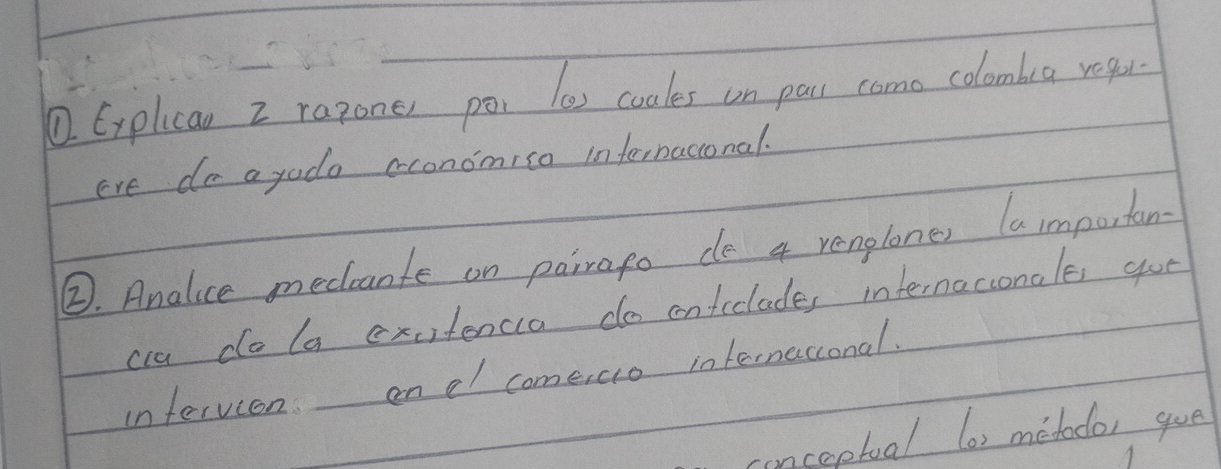 ①. Explicao 2 razones por los cuales un pais como colombia requi-
ere de ayuda económica internacional.
②. Analice mediante un párrafo de 4 renglones la importan-
cia de la existencia de entidades internacionales que
intervien en el comercio internacional.
conceptual los métodos que